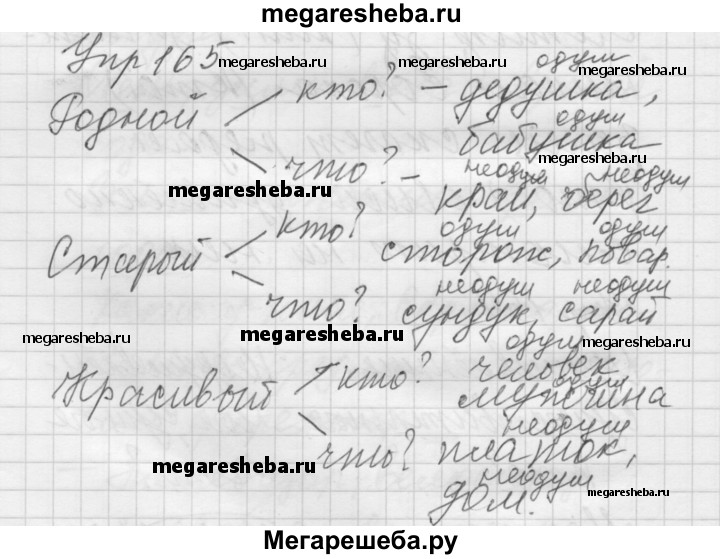 megaresheba.ru
Упр 165 megaresheba.ru megaresheba.ru одуш megaresheba.ru
Родной кто? – дедушка,
одуш
бабушка
megaresheba.ru
что? – неодуш неодуш
megaresheba.ru край, берег
кто? одуш одуш
Старый сторож, повар.
что? неодуш неодуш
megaresheba.ru megaresheba.ru сундук, сарай megaresheba.ru
одуш
Красивый кто? человек
одуш
мужчина
неодуш
что? платок,
megaresheba.ru
неодуш megaresheba.ru
дом.
Мегарешеба.ру